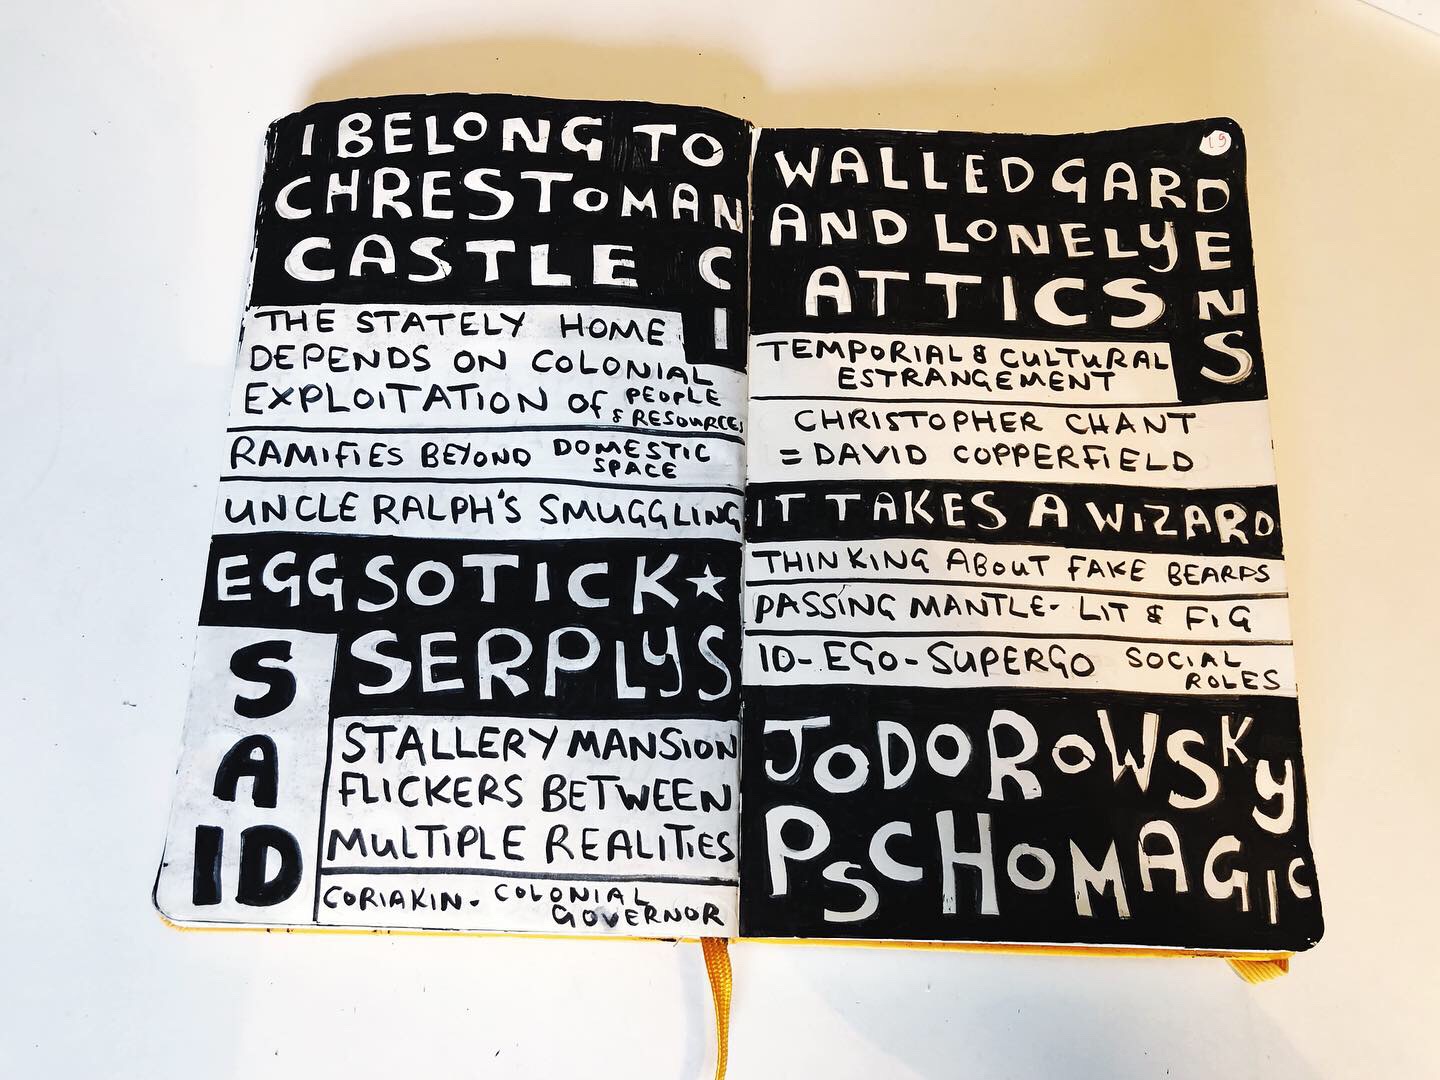 I BELONG TO
CHRESTOMANCI
CASTLE
THE STATELY HOME
DEPENDS ON COLONIAL
EXPLOITATION OF PEOPLE
& RESOURCES
RAMIFIES BEYOND DOMESTIC
SPACE
UNCLE RALPH'S SMUGGLING
EGGSOTICK★
SERPLYS
SAID
STALLERY MANSION
FLICKERS BETWEEN
MULTIPLE REALITIES
CORIAKIN - COLONIAL
GOVERNOR
19
WALLED GARDENS
AND LONELY
ATTICS
TEMPORIAL & CULTURAL
ESTRANGEMENT
CHRISTOPHER CHANT
= DAVID COPPERFIELD
IT TAKES A WIZARD
THINKING ABOUT FAKE BEARDS
PASSING MANTLE - LIT & FIG
ID - EGO - SUPERGO SOCIAL
ROLES
JODOROWSKY
PSCHOMAGIC